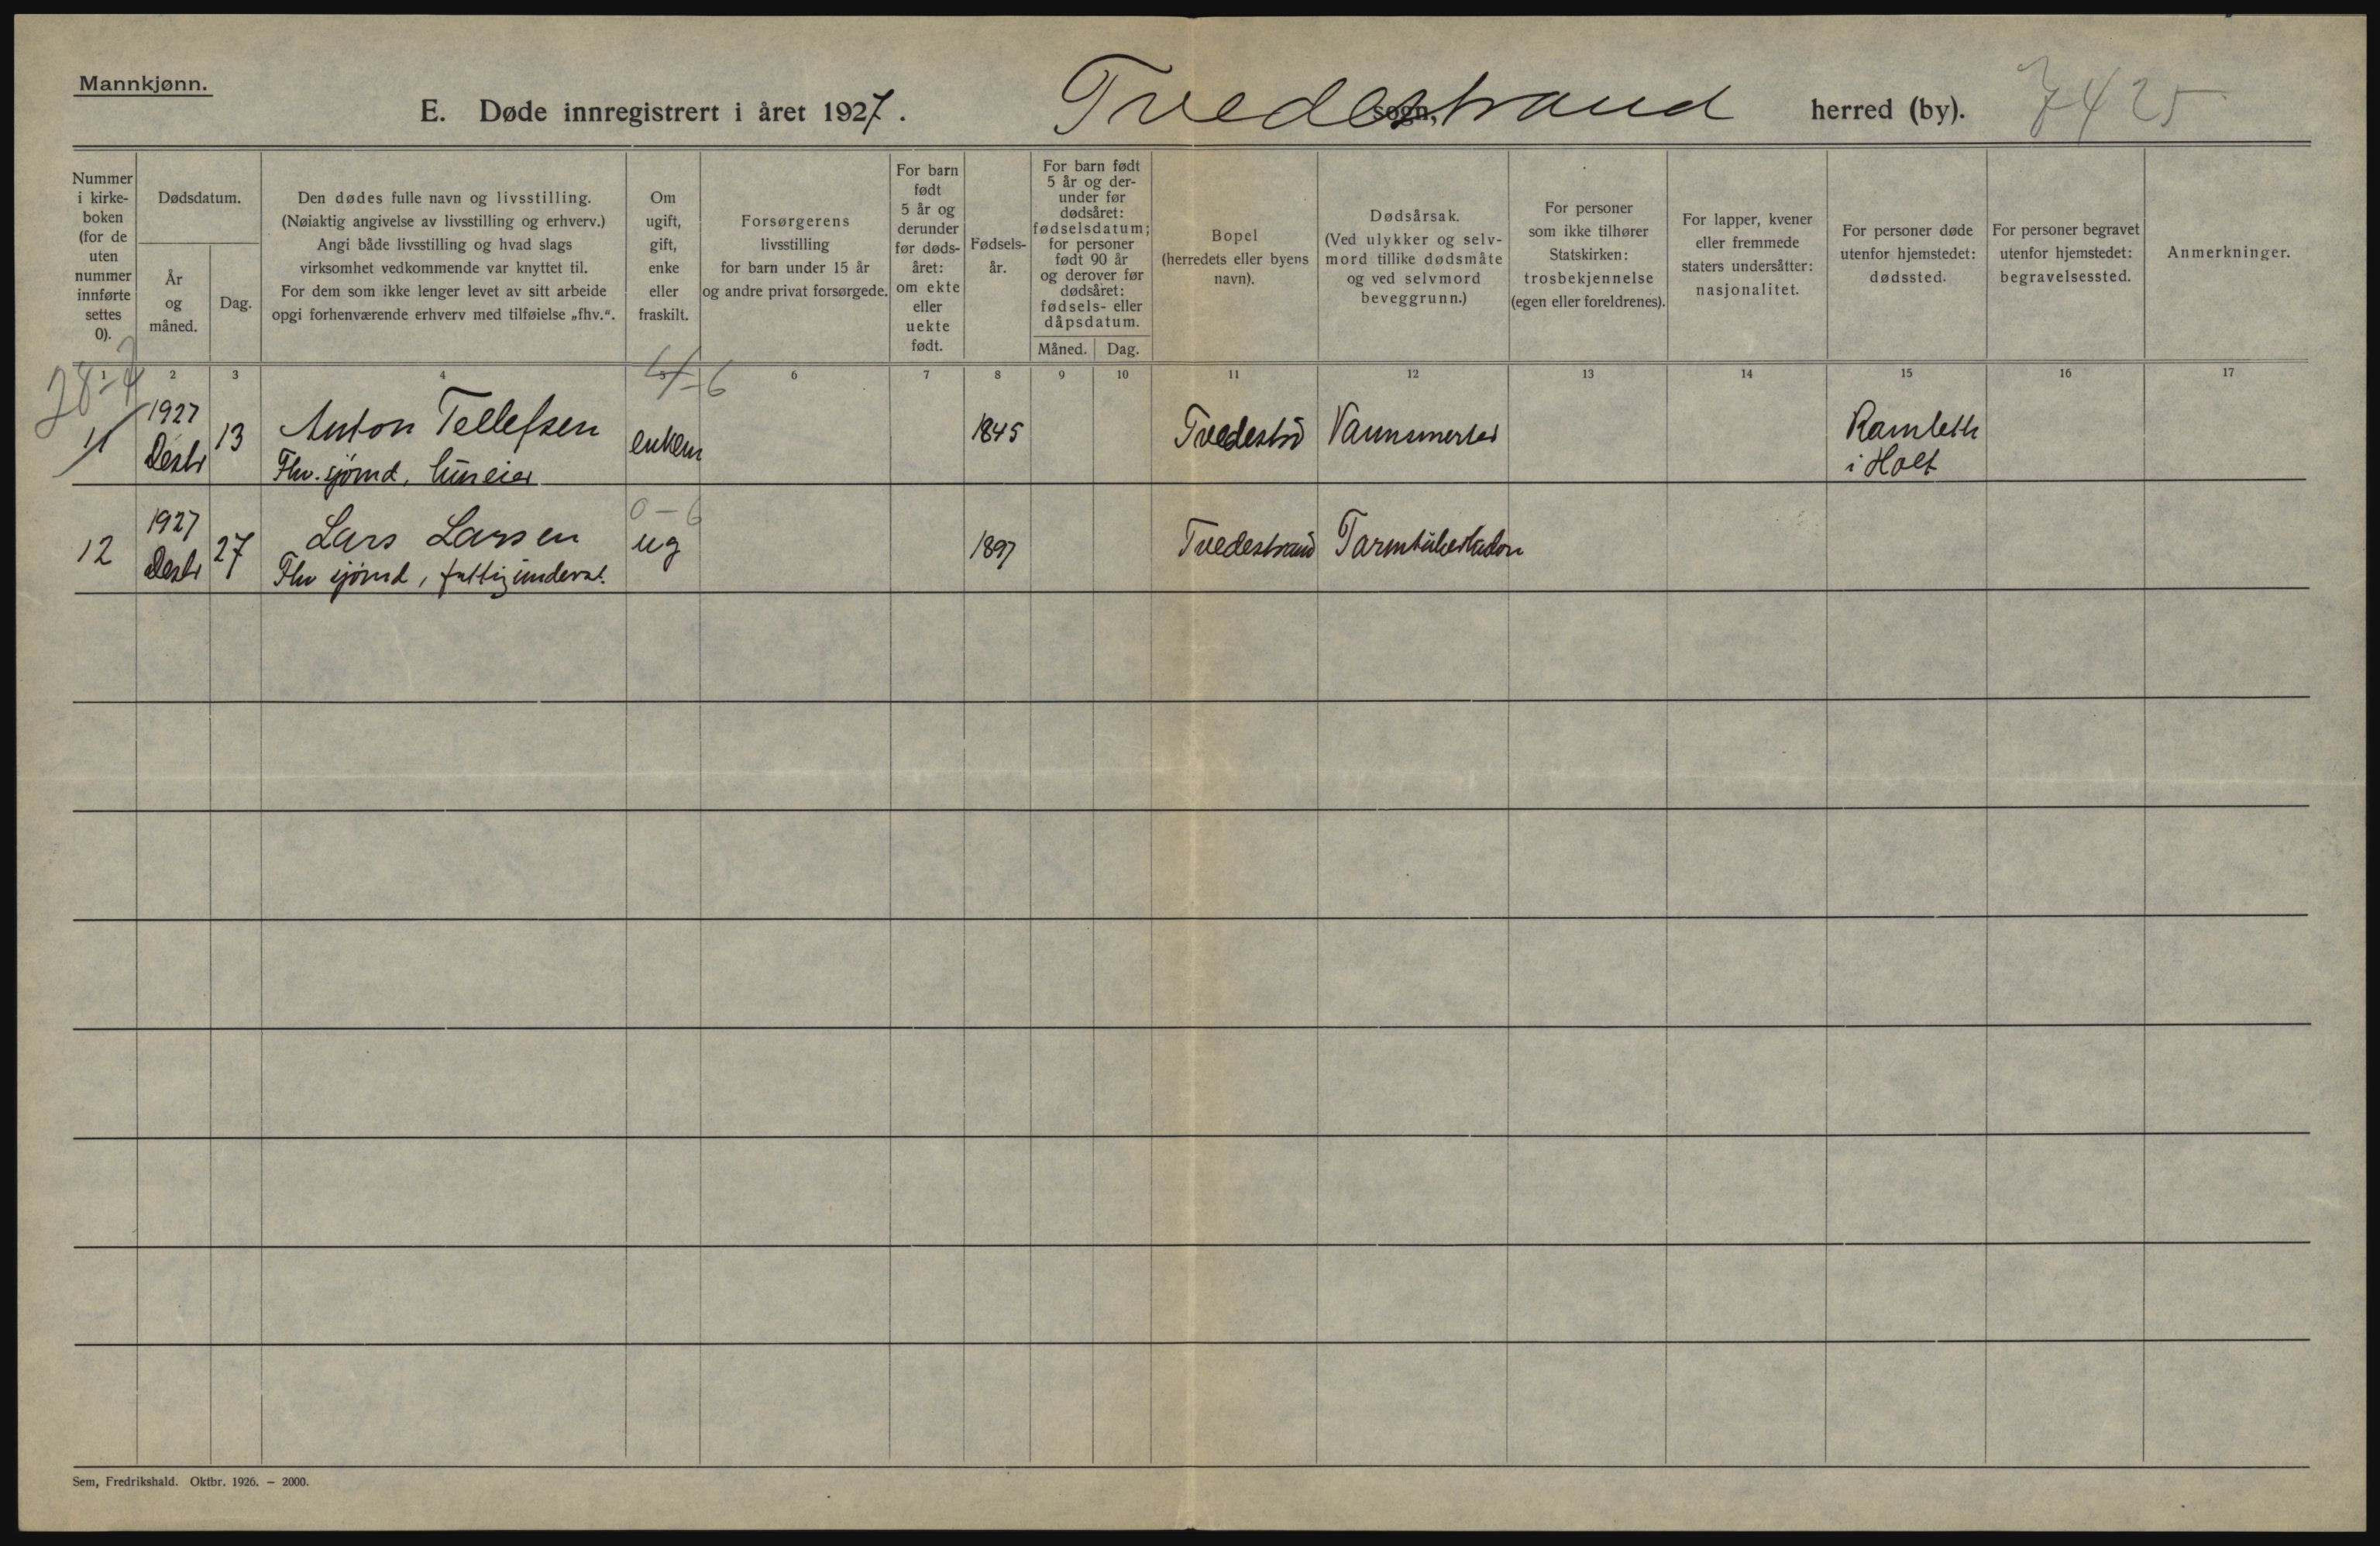 Mannkjønn.
E. Døde innregistrert i året 1927. Tvedestrand sogn, herred (by). 7425
Nummer i kirkeboken (for de uten nummer innførte settes 0).
Dødsdatum.
År og måned.
Dag.
Den dødes fulle navn og livsstilling.
(Nøiaktig angivelse av livsstilling og erhverv.)
Angi både livsstilling og hvad slags
virksomhet vedkommende var knyttet til.
For dem som ikke lenger levet av sitt arbeide
opgi forhenværende erhverv med tilføielse „fhv.“.
Om ugift, gift, enke eller fraskilt.
Forsørgerens
livsstilling
for barn under 15 år
og andre privat forsørgede.
For barn født 5 år og derunder før dødsåret: om ekte eller uekte født.
Fødselsår.
For barn født 5 år og derunder før dødsåret: fødselsdatum; for personer født 90 år og derover før dødsåret: fødsels- eller dåpsdatum.
Måned. Dag.
Bopel
(herredets eller byens
navn).
Dødsårsak.
(Ved ulykker og selvmord tillike dødsmåte
og ved selvmord
beveggrunn.)
For personer
som ikke tilhører
Statskirken:
trosbekjennelse
(egen eller foreldrenes).
For lapper, kvener
eller fremmede
staters undersåtter:
nasjonalitet.
For personer døde
utenfor hjemstedet:
dødssted.
For personer begravet
utenfor hjemstedet:
begravelsessted.
Anmerkninger.
1 2 3 4 5 6 7 8 9 10 11 12 13 14 15 16 17
4-6
11 1927 Desbr 13 Anton Tellefsen enkem 1845 Tvedestrd Ramleth
Fhv. sjømd, i Holt
0-6
12 1927 Desbr 27 Lars Larsen ug 1897 Tvedestrand Tarmtuberkulose
Fhv sjømd, fattigunderst.
Sem, Fredrikshald. Oktbr. 1926. — 2000.